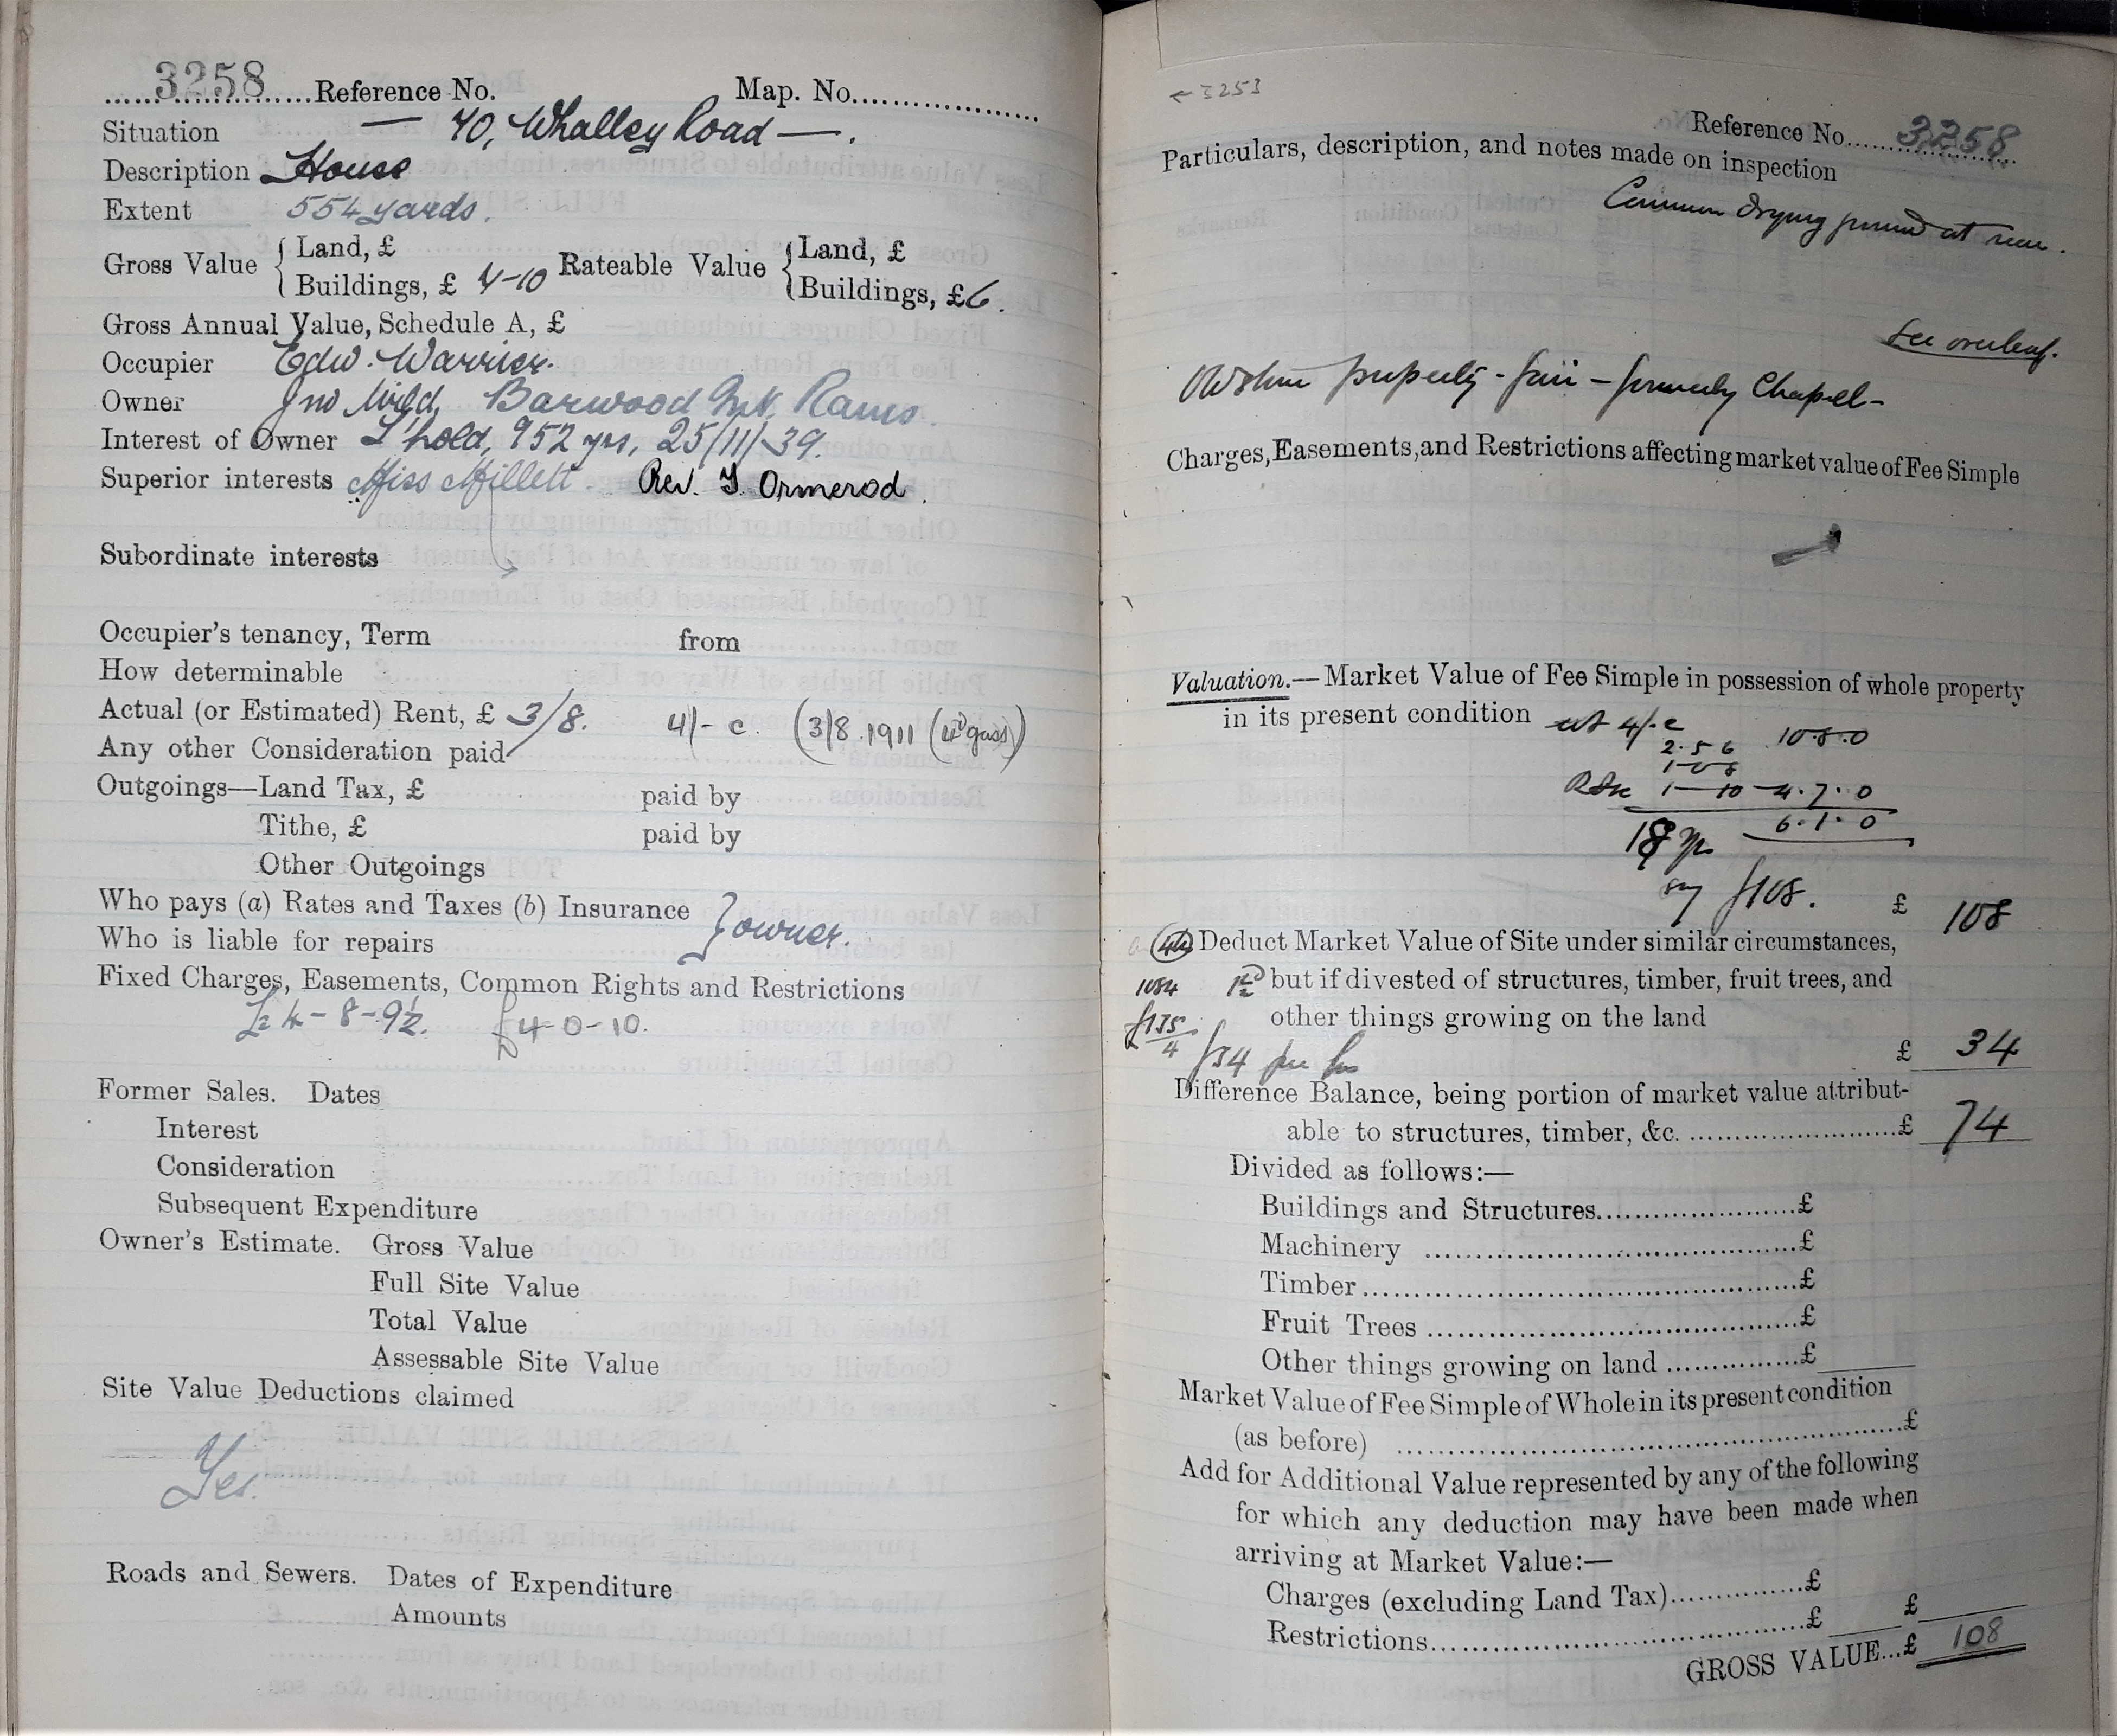 3258 Reference No. Map. No.
Situation — 40, Whalley Road —.
Description House
Extent 554 yards.
Gross Value { Land, £ Rateable Value { Land, £
Buildings, £ 4-10 Buildings, £6.
Gross Annual Value, Schedule A, £
Occupier Edw. Warrier.
Owner Jno Wild, Barwood Rams.
Interest of Owner L'hold, 952 yrs, 25/11/39.
Superior interests Miss Millett. Rev. T. Ormerod.
Subordinate interests
Occupier's tenancy, Term from
How determinable
Actual (or Estimated) Rent, £ 3/8. 4/- c. (3/8 1911 (4d gas))
Any other Consideration paid
Outgoings—Land Tax, £ paid by
Tithe, £ paid by
Other Outgoings
Who pays (a) Rates and Taxes (b) Insurance } owner.
Who is liable for repairs
Fixed Charges, Easements, Common Rights and Restrictions
£4-8-9½. £4-0-10.
Former Sales. Dates
Interest
Consideration
Subsequent Expenditure
Owner's Estimate. Gross Value
Full Site Value
Total Value
Assessable Site Value
Site Value Deductions claimed
Yes.
Roads and Sewers. Dates of Expenditure
Amounts
←3253
Reference No. 3258
Particulars, description, and notes made on inspection
Common drying ground at rear.
See overleaf.
Old stone property - fair - formerly Chapel -
Charges, Easements, and Restrictions affecting market value of Fee Simple
Valuation.—Market Value of Fee Simple in possession of whole property
in its present condition at 4/- c 10.8.0
2.5 6
1-0 8
1-10-4.7.0
6.1.0
18 yp
say £108. £ 108
Deduct Market Value of Site under similar circumstances,
but if divested of structures, timber, fruit trees, and
1084
other things growing on the land
£135/4 £34 per hse £ 34
Difference Balance, being portion of market value attribut-
able to structures, timber, &c. £ 74
Divided as follows:—
Buildings and Structures £
Machinery £
Timber £
Fruit Trees £
Other things growing on land £
Market Value of Fee Simple of Whole in its present condition
(as before) £
Add for Additional Value represented by any of the following
for which any deduction may have been made when
arriving at Market Value:—
Charges (excluding Land Tax) £
Restrictions £ £
GROSS VALUE...£ 108